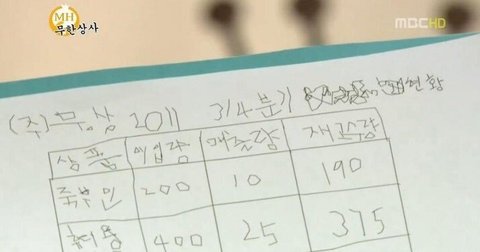 MH
무한상사
MBC HD
(주)무상 2011 3/4분기 현황
상품 매입량 매출량 재고수량
죽부인 200 10 190
효자용 400 25 375